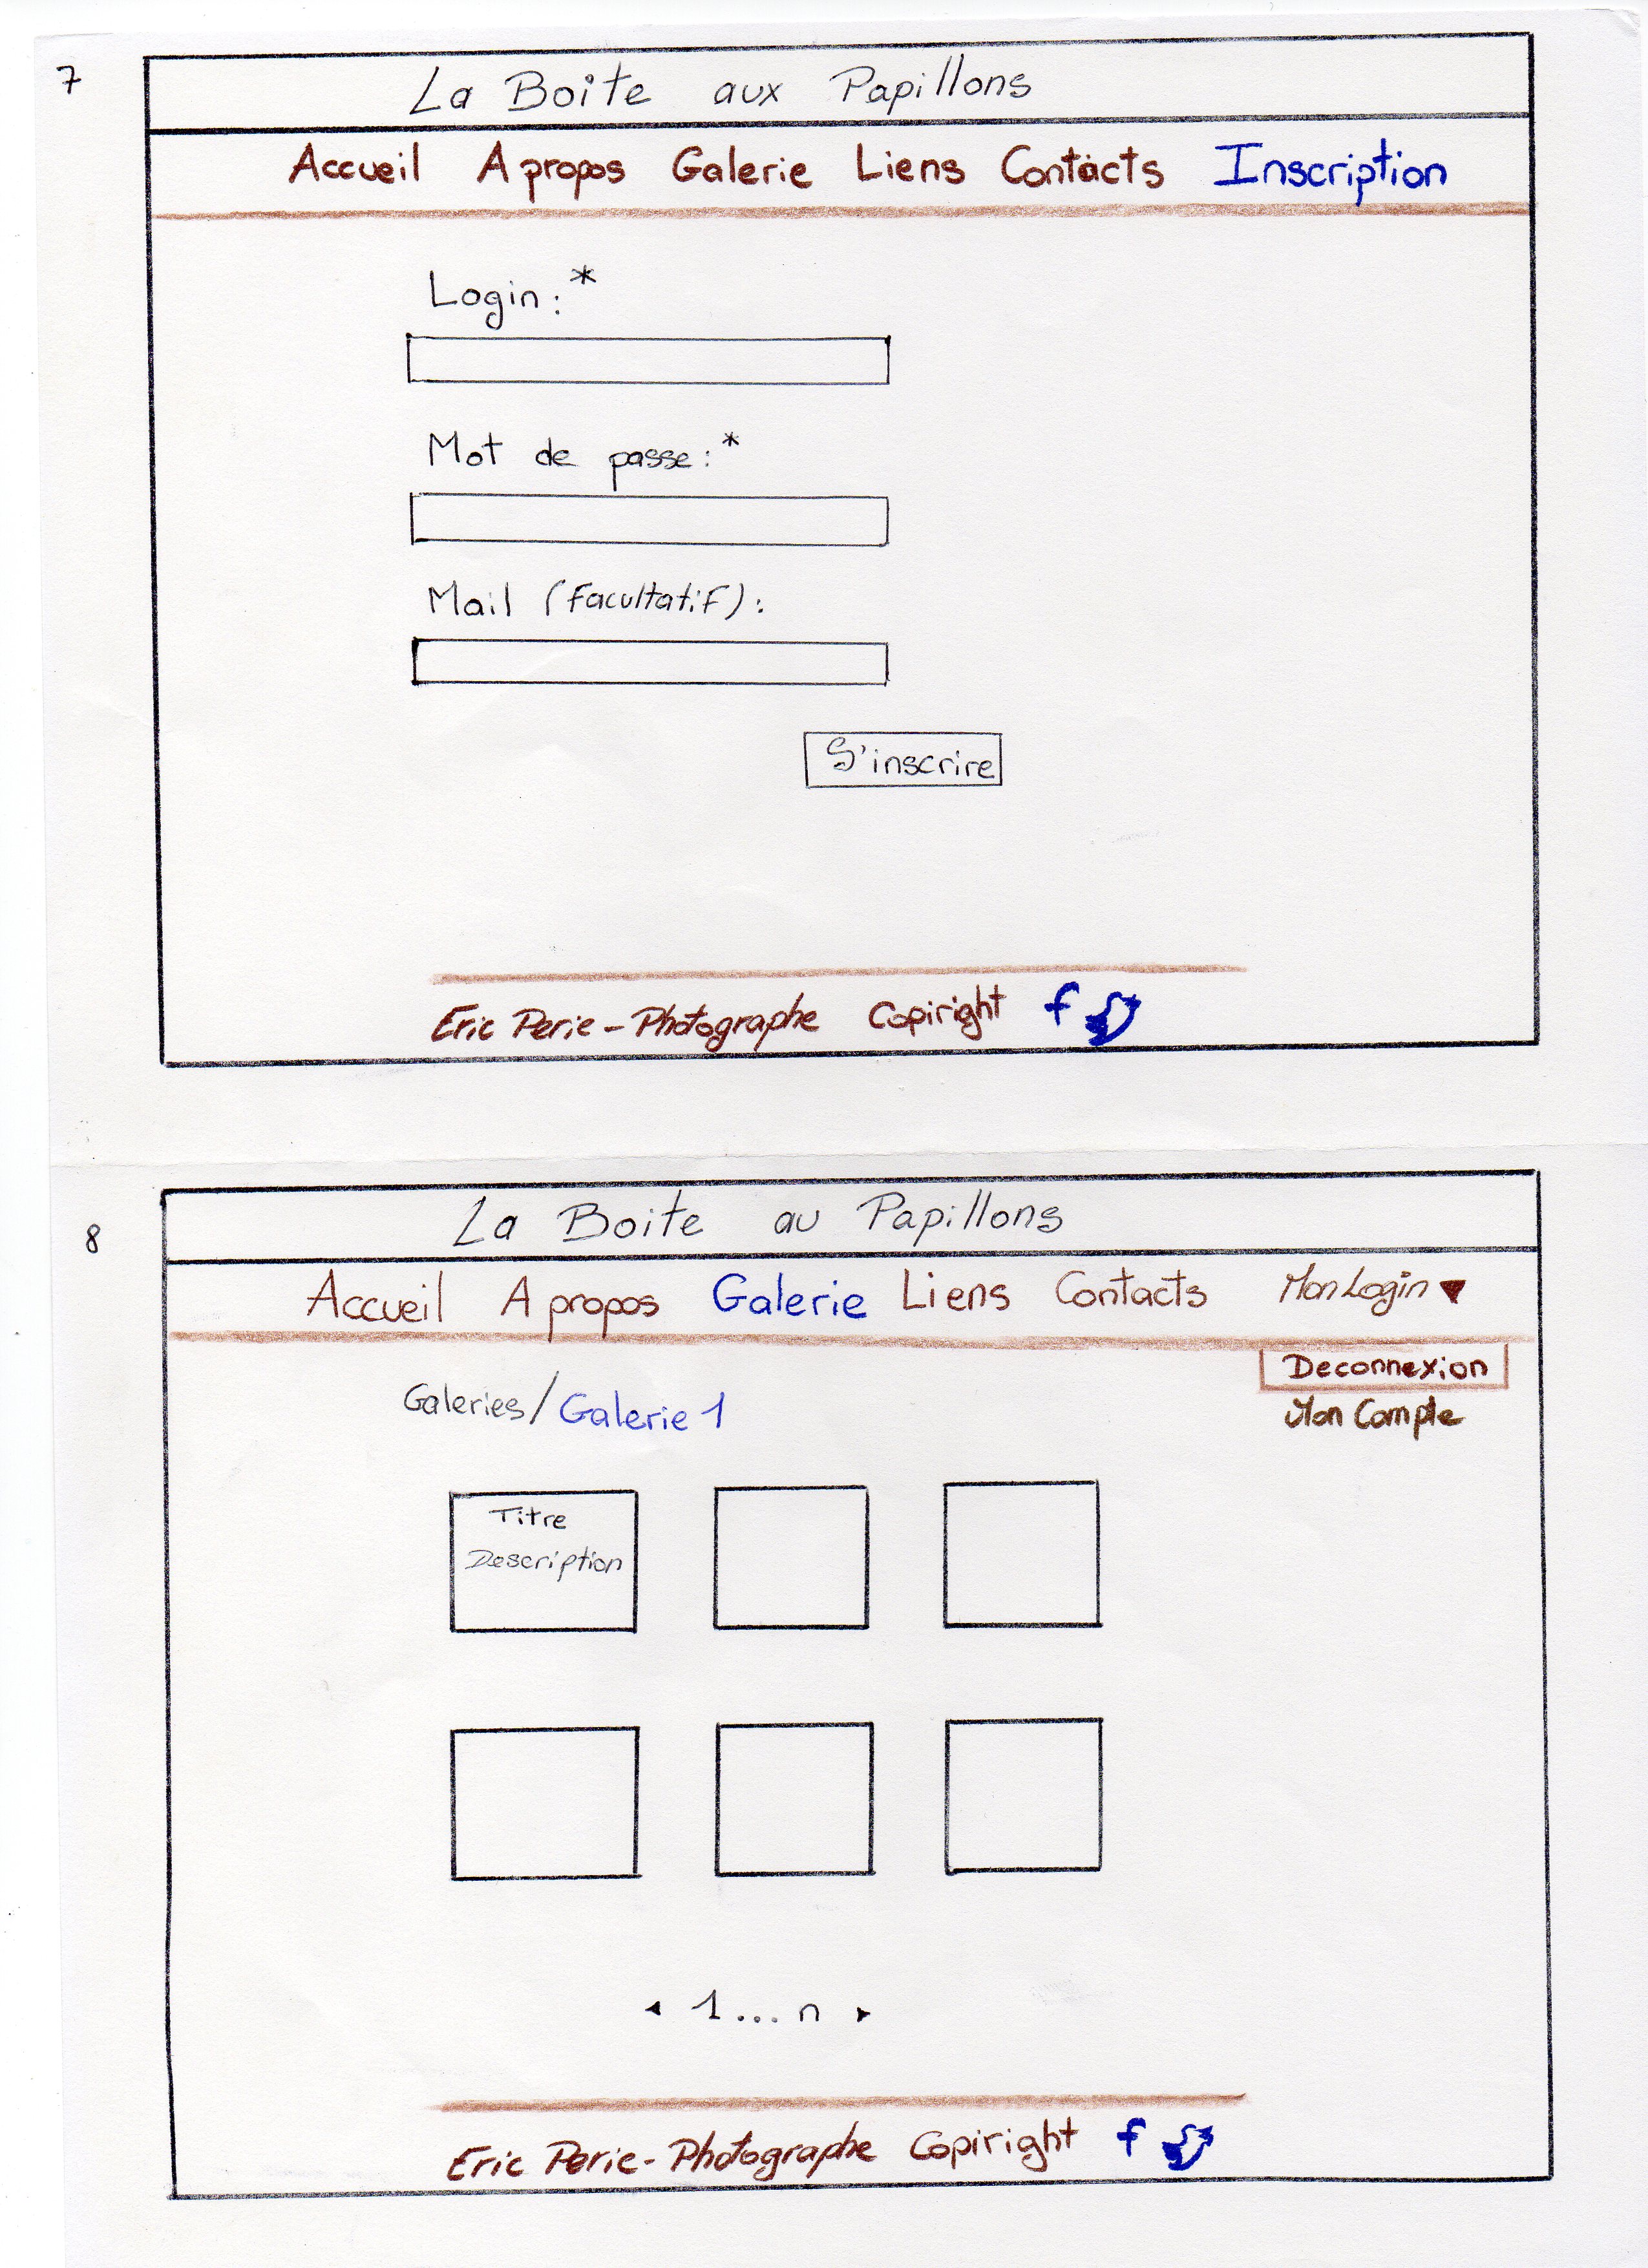 7
La Boite aux Papillons
Accueil A propos Galerie Liens Contacts Inscription
Login:*
Mot de passe:*
Mail (facultatif):
S'inscrire
Eric Perie-Photographe Copiright f
8
La Boite au Papillons
Accueil A propos Galerie Liens Contacts Mon Login ▼
Deconnexion
Mon Compte
Galeries/Galerie 1
Titre
Description
◂ 1...n ▸
Eric Perie-Photographe Copiright f